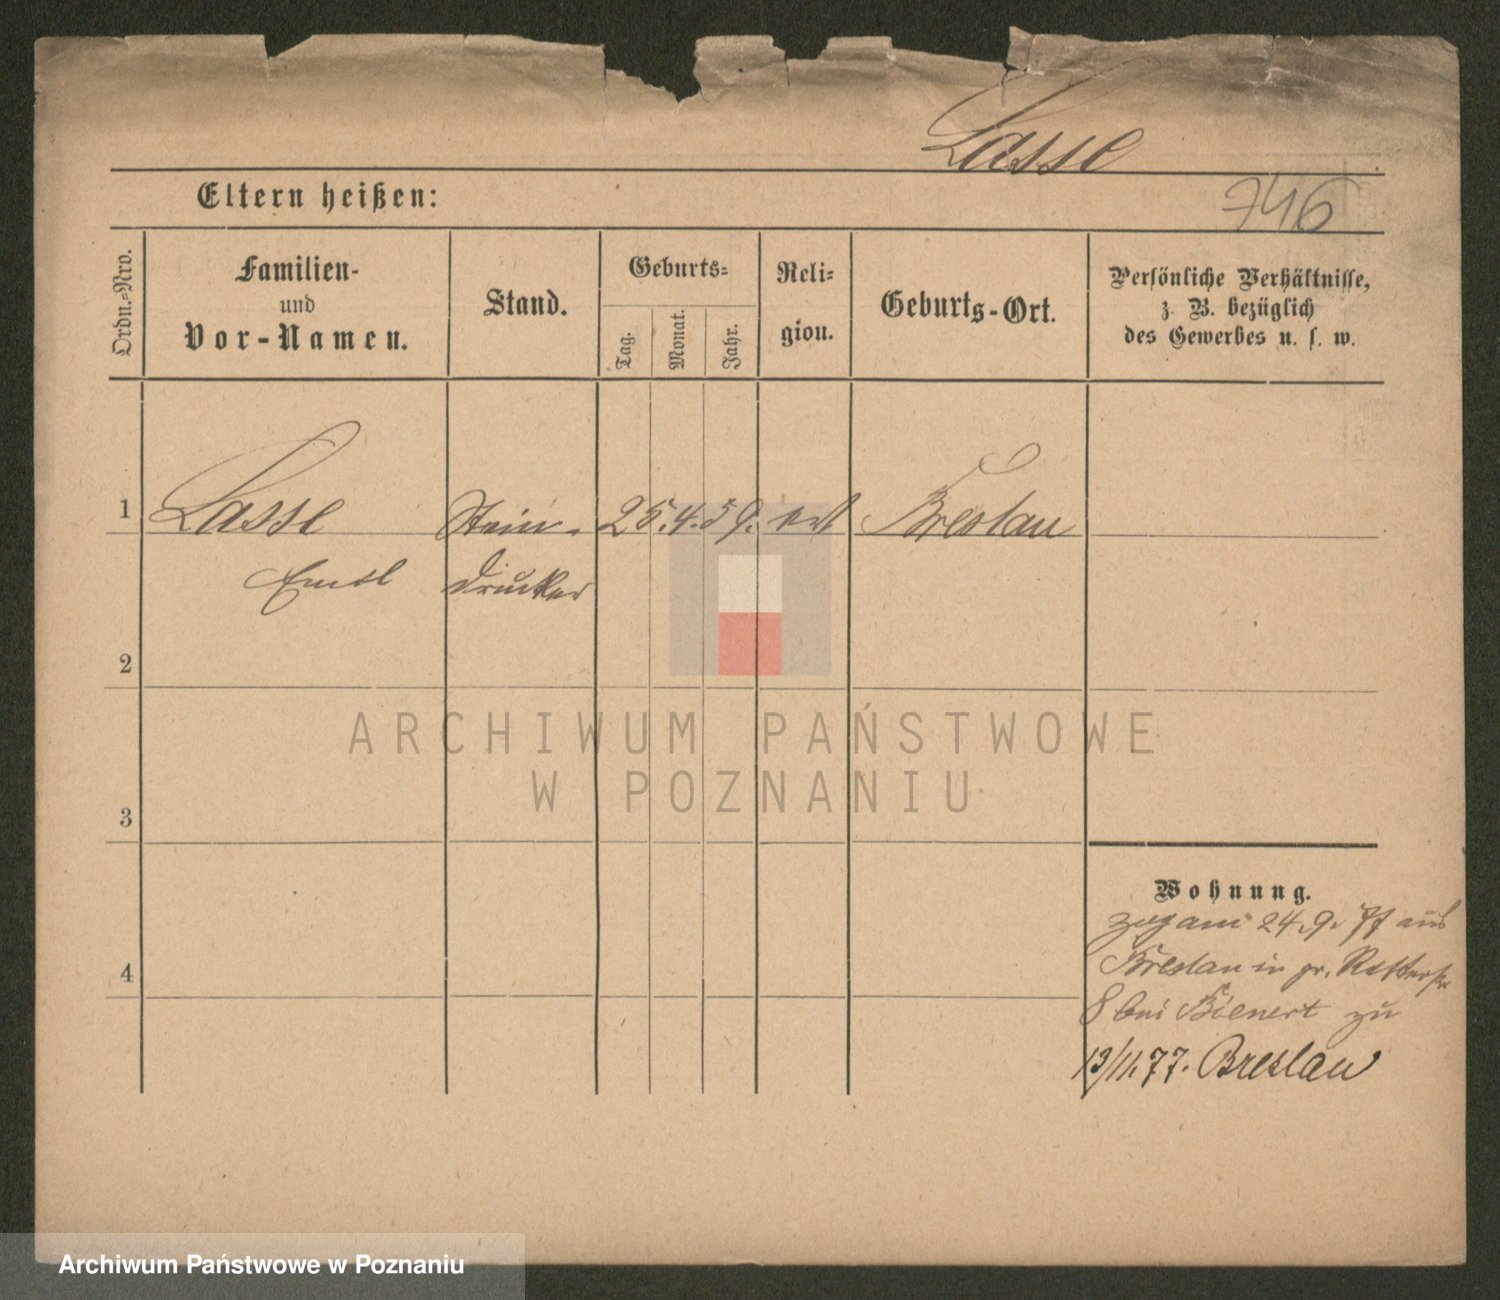 Lasse
Eltern heißen:
746
Ordn.-Nro.
Familien-
und
Vor-Namen.
Stand.
Geburts-
Tag.
Monat.
Jahr.
Reli-
gion.
Geburts-Ort.
Persönliche Verhältnisse,
z. B. bezüglich
des Gewerbes u. s. w.
1 Lasse Stein- 25. 4. 59. Breslau
Emil drucker
2
ARCHIWUM PAŃSTWOWE
W POZNANIU
3
Wohnung.
zog am 24. 9. 77 aus
4
Breslau in gr. Ritterstr
8 bei Bienert zu
13/11.77. Breslau
Archiwum Państwowe w Poznaniu